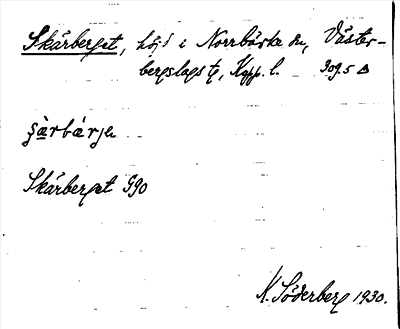 Skärberget, höjd i Norrbärke sn, Väster-
bergslags tg, Kopp. l. 309.5 Δ
Skärberget G90
K. Söderberg 1930.